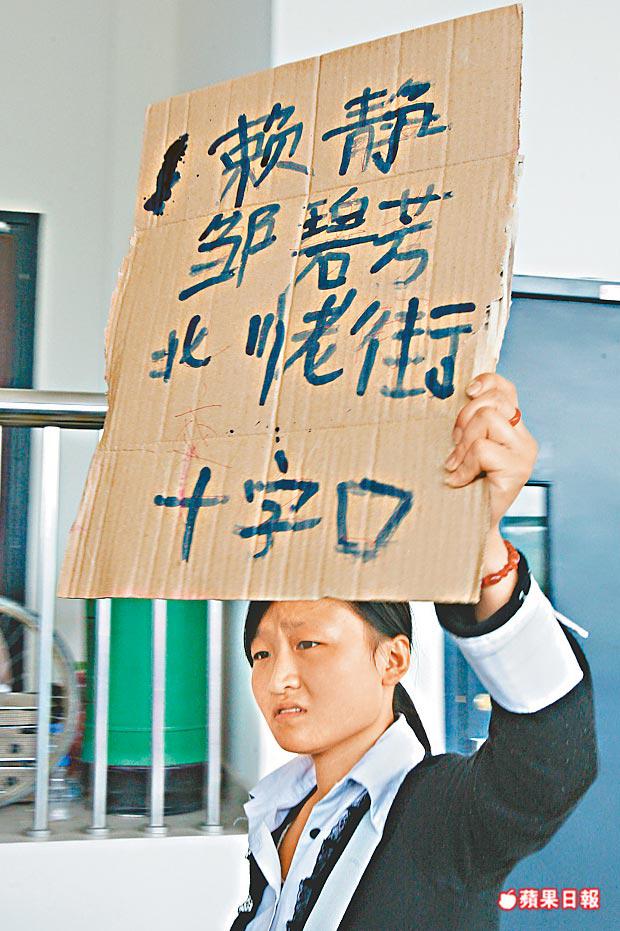 赖静
邹碧芳
北川老街
十字口
蘋果日報